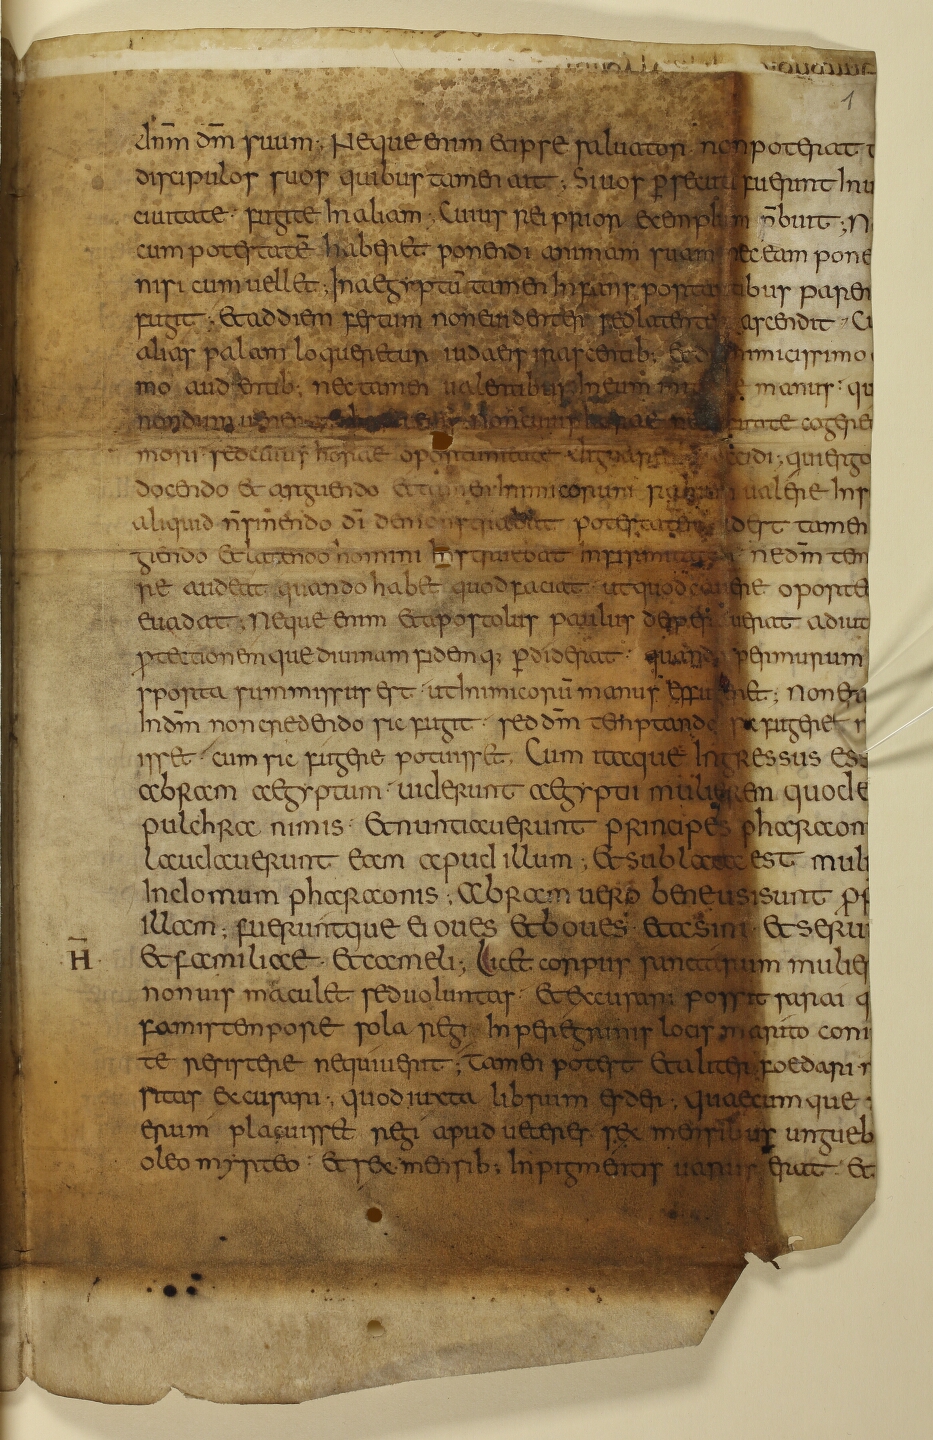 1
dn̄m dm̄ suum; Neque enim et ipse saluator non poterat t
discipulos suos quibus tamen ait; Si uos ꝑsecuti fuerint In u
ciuitate fugite In aliam; Cuius rei prior exemplum p̄buit; N
cum potestatē haberet ponendi animam suam nec eam pone
nisi cum uellet; In aegyptū tamen Infans portantibus paren
fugit; Et ad diem festum non euidenter sed latenter ascendit C
alias palam loqueretur iudaeis irascentib; et inimicissimo
mo audientib; nec tamen ualentibus In eum mittere manus qu
nondum horae cogere
mori sed cuius horae oportunitate occidi; qui ergo
docendo et arguendo et tamen Inimicorum ualere In i
aliquid n̄ sinendo dī demonstrabat potestatem Idem tamen
giendo et latendo homini Instruebat Infirmitatem ne dm̄ tem
re audeat quando habet quod faciat ut quod cauere oporte
euadat; Neque enim et apostolus paulus desperauerat adiut
ꝓtectionem que diuinam fidemq; ꝑdiderat quando per murum
sporta summissus est ut Inimicorū manus effugeret; Non er
In dm̄ non credendo sic fugit sed dm̄ temptando sic fugere n
isset cum sic fugere potuisset. Cum itaque Ingressus es
abram aegyptum uiderunt aegyptii mulierem quod e
pulchra nimis et nuntiauerunt principes pharaon
laudauerunt eam apud illum; et sublata est muli
In domum pharaonis; Abram uero bene usi sunt ꝓ
illam; fueruntque ei oues et boues et asini et serui
H̄ et familiae et cameli; Licet corpus sanctarum mulier
non uis maculet sed uoluntas et excusari possit sarai q
famis tempore sola regi In peregrinis locis marito coni
te resistere nequiuerit; tamen potest et aliter foedari
sitas excusari; quod iuxta librum ester; quaecumque
erum placuisset regi apud ueteres sex mensibus ungueb
oleo myrteo et sex mensib; In pigmentis uariis erat et